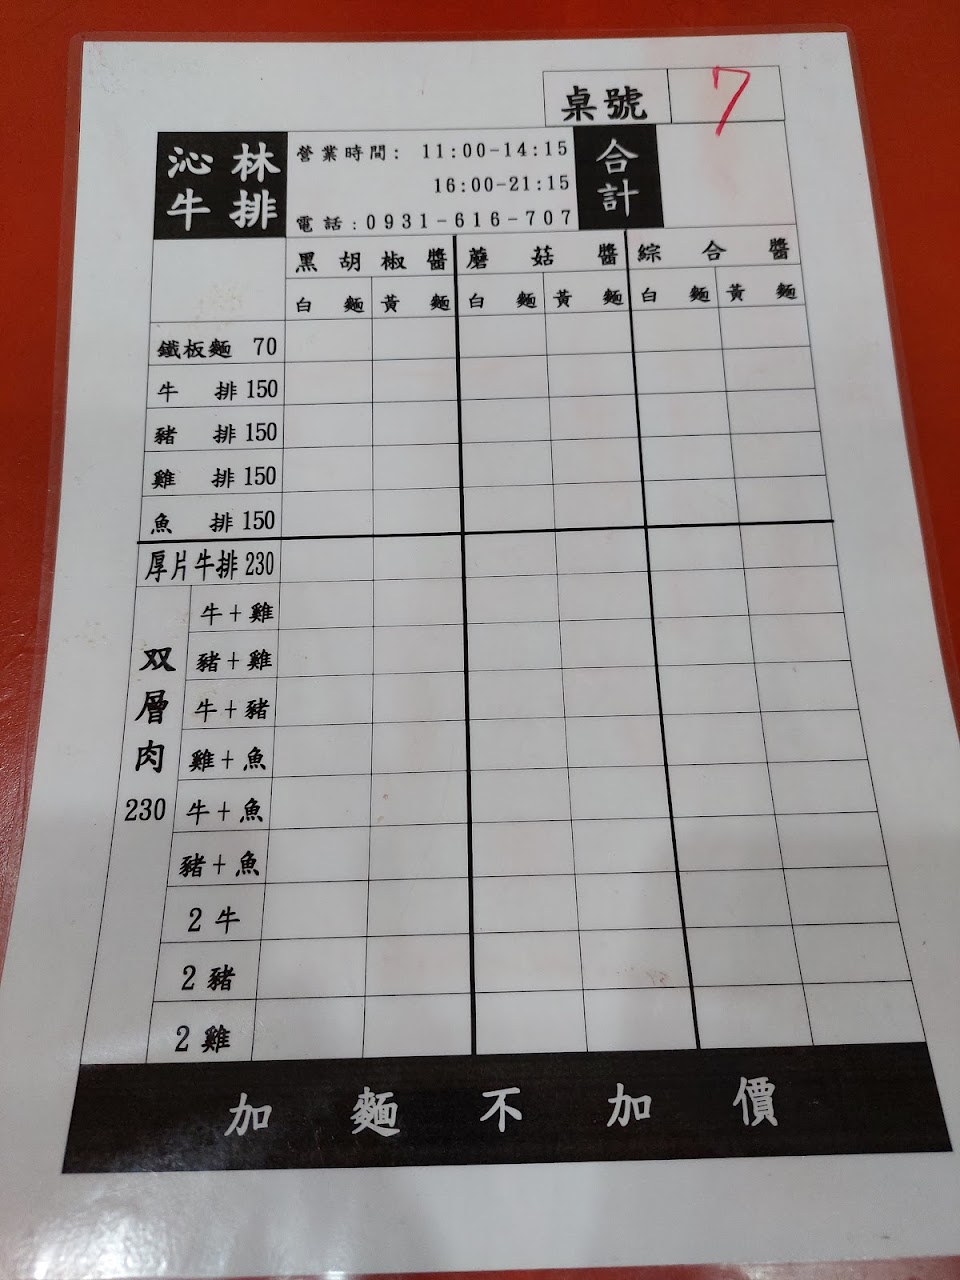 桌號 7
沁林牛排
營業時間: 11:00-14:15
16:00-21:15
電話:0931-616-707
合計
黑胡椒醬 蘑菇醬 綜合醬
白麵 黃麵 白麵 黃麵 白麵 黃麵
鐵板麵 70
牛排 150
豬排 150
雞排 150
魚排 150
厚片牛排 230
双層肉 230
牛+雞
豬+雞
牛+豬
雞+魚
牛+魚
豬+魚
2 牛
2 豬
2 雞
加麵不加價